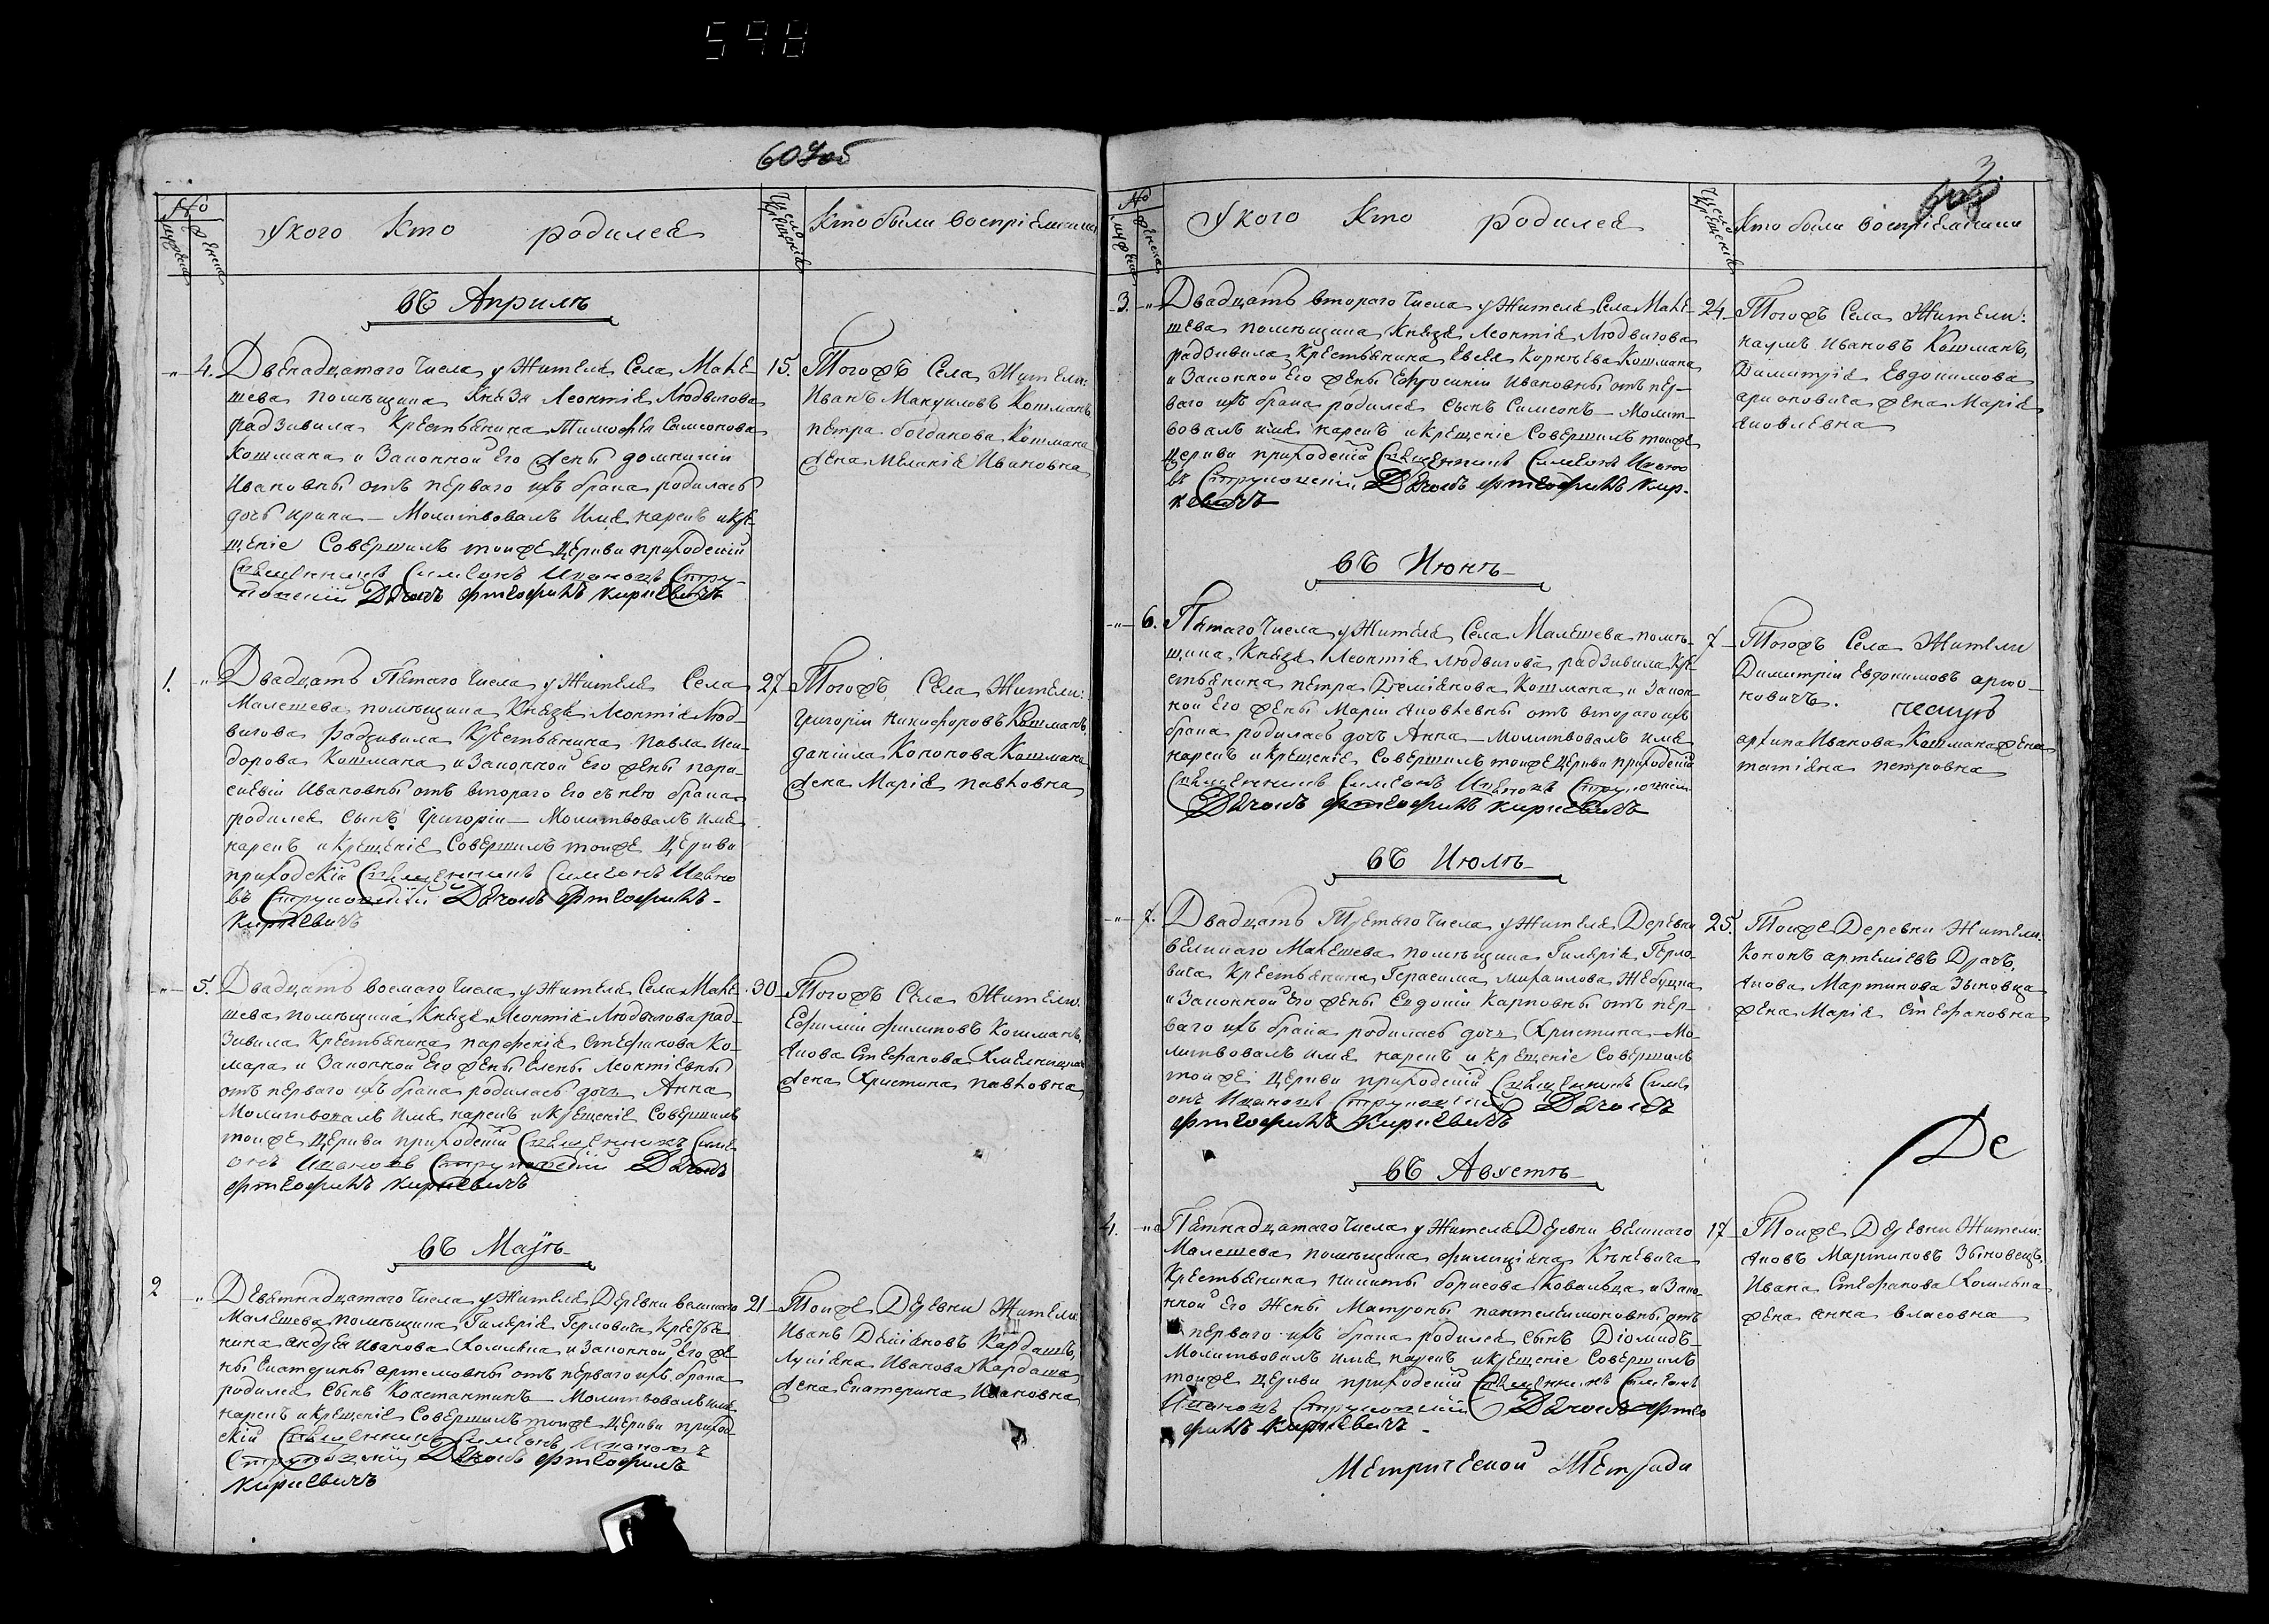 598
607об
№
мужеска
женска
У кого Кто родился
Число крещенія
Кто были воспріемники
въ Априлѣ
4. Двенадцатого числа у жителя Села Мале
шева помѣщика Князя Леонтія Людвигова
радзивила Крестьянина Тимофея Симеонова
Кошмана и Законной его жены домникии
Ивановны отъ перваго ихъ брака родилась
дочь ирина — Молитвовалъ имя нарекъ и кре
щеніе Совершилъ тоижде Церкви приходскій
Священникъ Симеонъ
Дьячокъ Фтеофилъ Киркевичъ
15. Тогожъ Села Жители:
Иванъ Мануиловъ Кошманъ
петра богданова Кошмана
жена Меланія Ивановна
1. Двадцать Пятаго числа у Жителя Села
Малешева помѣщика Князя Леонтія Люд
вигова Радзивила Крестьянина Павла Иси
дорова Кошмана и Законной его жены пара
скевіи Ивановны отъ втораго его съ нею брака
родился Сынъ Григорій — Молитвовалъ имя
нарекъ и Крещеніе Совершилъ тоижде Церкви
приходскій Священникъ Симеонъ
въ Дьячокъ Фтеофилъ
Киркевичъ
27 Тогожъ Села Жители:
Григорій никифоровъ Кошманъ,
даніила Кононова Кошмана
жена Марія павловна
5. Двадцать восмаго числа у Жителя Села Мале
шева помѣщика Князя Леонтія Людвигова рад
зивила Крестьянина парфенія Стефанова Ко
мара и Законной Его жены Елены Леонтіевны
отъ перваго ихъ брака родилась дочь Анна
Молитвовалъ имя нарекъ и крещеніе Совершилъ
тоижде Церкви приходскій Священникъ Симе
онъ Дьячокъ
Фтеофилъ Киркевичъ
30 Тогожъ Села Жители:
Ефимій филиповъ Кошманъ,
Якова Стефанова
жена Христина павловна
въ Маїѣ
2 Девятнадцатаго числа у Жителя Деревни великаго
Малешева помѣщика Гилярія Герловича Крестья
нина андрея иванова и Законной Его же
ны Екатерины артемовны отъ перваго ихъ брака
родился Сынъ Константинъ — Молитвовалъ имя
нарекъ и крещеніе Совершилъ тоижде Церкви приход
скій Священникъ Симеонъ
Дьячокъ Фтеофилъ
Киркевичъ
21 Тоижде Деревни Жители
Иванъ Демяновъ Кардашъ,
Лукіяна Иванова Кардаша
жена Екатерина Ивановна
3.
№
мужеска
женска
У кого Кто родился
Число крещенія
Кто были воспріемники
3. Двадцать втораго числа у Жителя Села Мале
шева помѣщика Князя Леонтія Людвигова
радзивила Крестьянина Евсея Корнѣева Кошмана
и Законной Его жены Ефросиніи Ивановны отъ пер
ваго ихъ брака родился Сынъ Симеонъ — Молит
вовалъ имя нарекъ и Крещеніе Совершилъ тоижде
Церкви приходскій Священникъ Симеонъ
въ Дьячокъ Фтеофилъ Кир
кевичъ
24 Тогожъ Села Жители:
наумъ ивановъ Кошманъ,
Димитрія Евдокимова
жена Марія
яковлевна
въ Июнѣ
6. Пятаго числа у Жителя Села Малешева помѣ
щика Князя Леонтія людвигова радзивила Кре
стьянина петра Деміянова Кошмана и Закон
ной Его жены Маріи яковлевны отъ втораго ихъ
брака родилась дочь Анна — молитвовалъ имя
нарекъ и крещеніе Совершилъ тоижде Церкви приходскій
Священникъ Симеонъ
Дьячокъ Фтеофилъ Киркевичъ
7 Тогожъ Села Жители
Димитрій Евдокимовъ
архипа Иванова Кошмана жена
татіяна петровна
въ Июлѣ
7. Двадцать Третяго числа у Жителя Деревни
великаго Малешева помѣщика Гилярія Герло
вича Крестьянина Герасима михаилова
и Законной Его жены Евдокіи Карповны отъ пер
ваго ихъ брака родилась дочь Христина — Мо
литвовалъ имя нарекъ и крещеніе Совершилъ
тоижде Церкви приходскій Священникъ Симе
онъ Дьячокъ
Фтеофилъ Киркевичъ
25. Тоижде Деревни Жители
Кононъ артеміевъ Драчъ,
Якова Мартинова Зыновца
жена Марія Стефановна
Де
въ Августѣ
4. Пятнадцатаго числа у Жителя Деревни великаго
Малешева помѣщика
Крестьянина никиты борисова Ковальца и Зако
нной Его Жены Матроны пантелеимоновны отъ
перваго ихъ брака родился Сынъ Діомидъ
Молитвовалъ имя нарекъ и крещеніе Совершилъ
тоижде Церкви приходскій Священникъ Симеонъ
Дьячокъ Фтео
филъ Киркевичъ
17 Тоижде Деревни Жители:
Яковъ Мартиновъ Зыновецъ,
Ивана Стефанова
жена анна власовна
Метрической Тетради